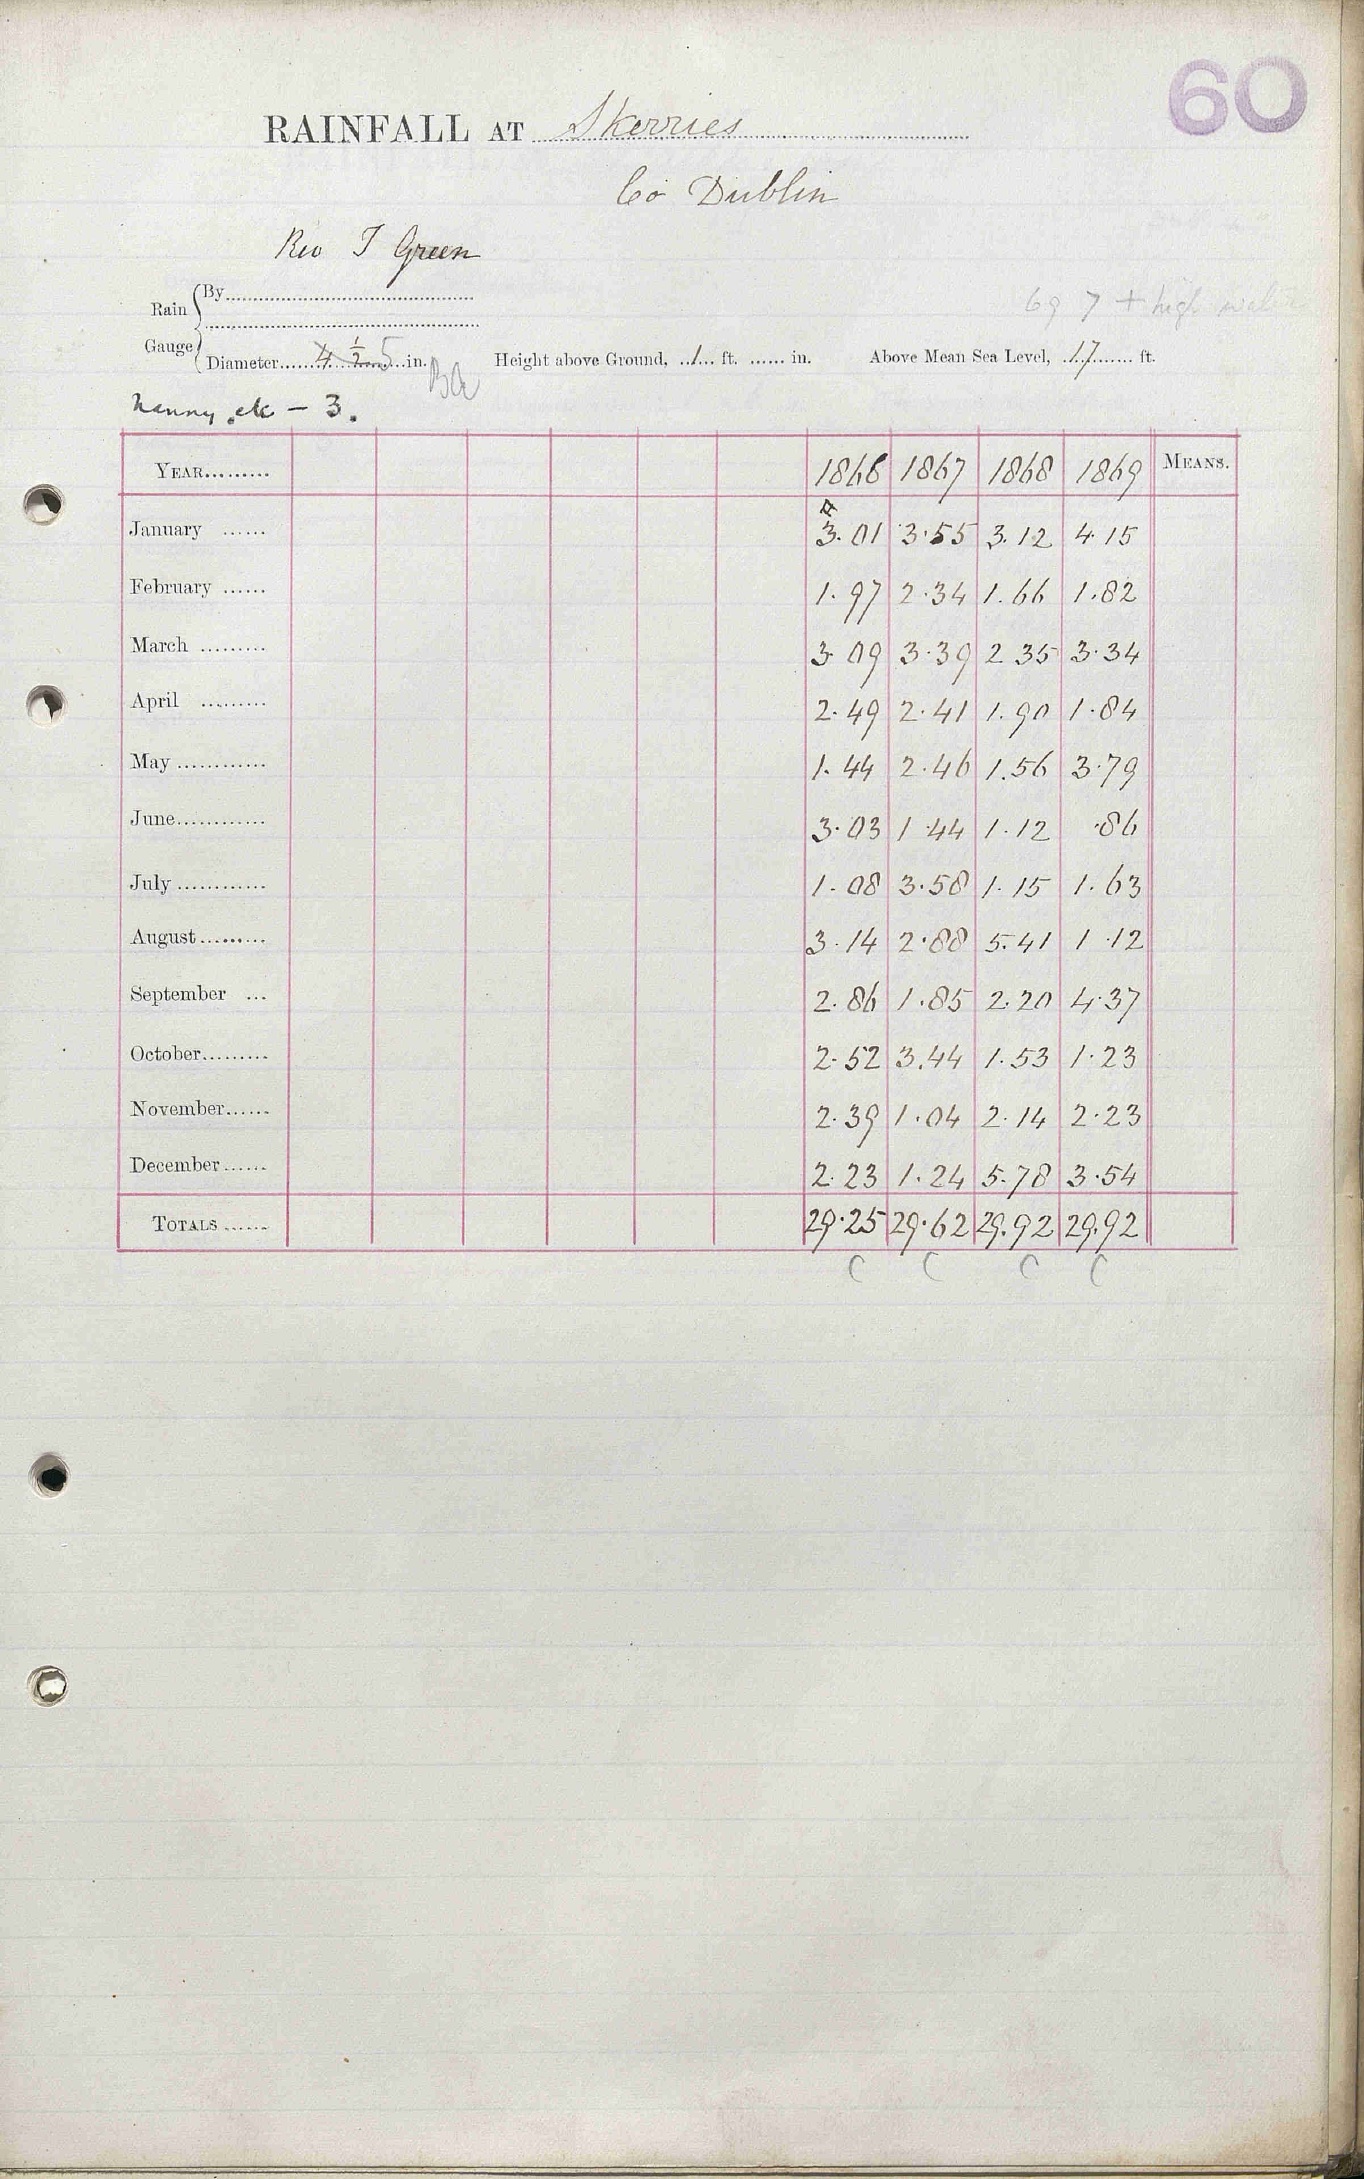 60
RAINFALL AT Skerries
Co Dublin
Rev T Green
Rain Gauge
By
69 7 + high water
Diameter 4 1/2 5 in. Height above Ground, 1 ft. in. Above Mean Sea Level, 17 ft.
Nanny etc – 3.
YEAR 1866 1867 1868 1869 MEANS.
January 3.01 3.55 3.12 4.15
February 1.97 2.34 1.66 1.82
March 3.09 3.39 2.35 3.34
April 2.49 2.41 1.90 1.84
May 1.44 2.46 1.56 3.79
June 3.03 1.44 1.12 .86
July 1.08 3.58 1.15 1.63
August 3.14 2.88 5.41 1.12
September 2.86 1.85 2.20 4.37
October 2.52 3.44 1.53 1.23
November 2.39 1.04 2.14 2.23
December 2.23 1.24 5.78 3.54
TOTALS 29.25 29.62 29.92 29.92
C C C C